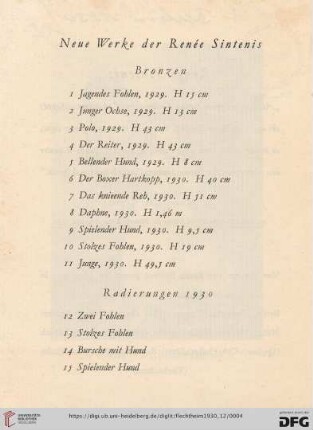 Neue Werke der Renée Sintenis
Bronzen
1 Jagendes Fohlen, 1929. H 15 cm
2 Junger Ochse, 1929. H 13 cm
3 Polo, 1929. H 43 cm
4 Der Reiter, 1929. H 43 cm
5 Bellender Hund, 1929. H 8 cm
6 Der Boxer Hartkopp, 1930. H 40 cm
7 Das knieende Reh, 1930. H 51 cm
8 Daphne, 1930. H 1,46 m
9 Spielender Hund, 1930. H 9,5 cm
10 Stolzes Fohlen, 1930. H 19 cm
11 Junge, 1930. H 49,5 cm
Radierungen 1930
12 Zwei Fohlen
13 Stolzes Fohlen
14 Bursche mit Hund
15 Spielender Hund
UNIVERSITÄTS-
BIBLIOTHEK
HEIDELBERG
https://digi.ub.uni-heidelberg.de/diglit/flechtheim1930_12/0004
DFG